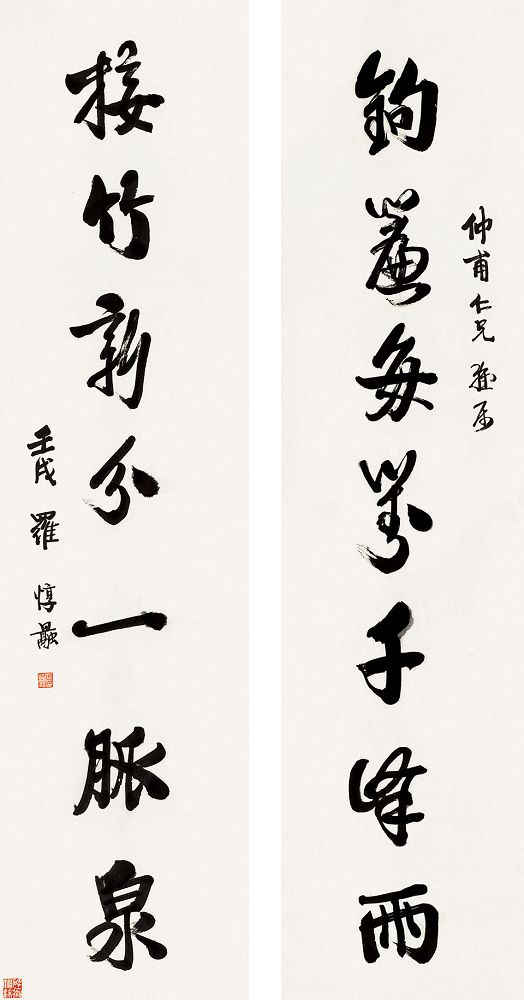 仲甫仁兄雅屬
鉤簾每對千峰雨
接竹新分一脈泉
壬戌羅惇曧